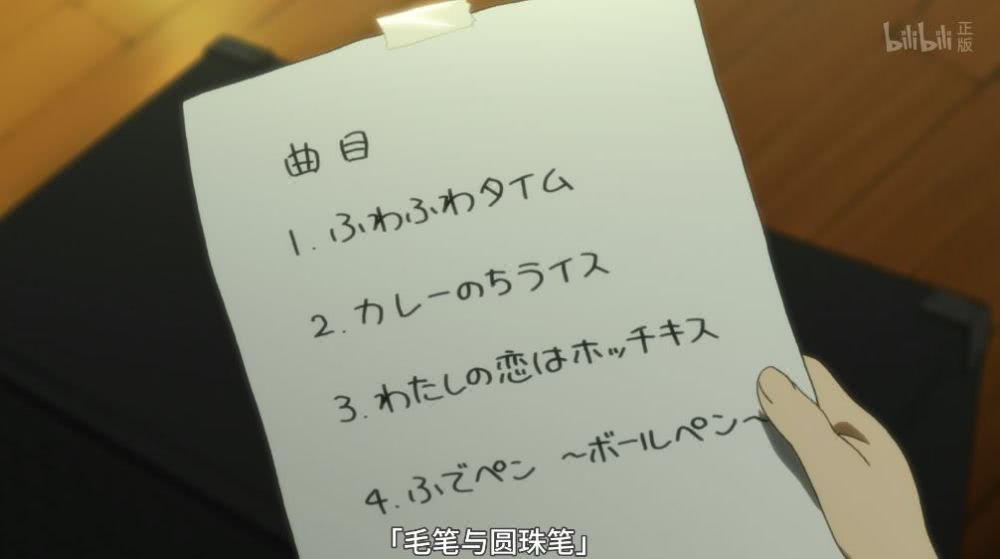 bilibili 正版
曲目
1. ふわふわタイム
2. カレーのちライス
3. わたしの恋はホッチキス
4. ふでペン ~ボールペン~
「毛笔与圆珠笔」